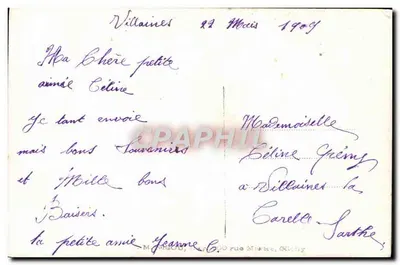 Villaines 22 Mars 1905
Ma Chère petite
aimée Céline
je tant envoie
mais bons Souveniers
et Mille bons
Baisers.
ta petite amie Jeanne C.
Mademoiselle
Céline Frémy
a Villaines la
Carelle Sarthe
CPAPHIL